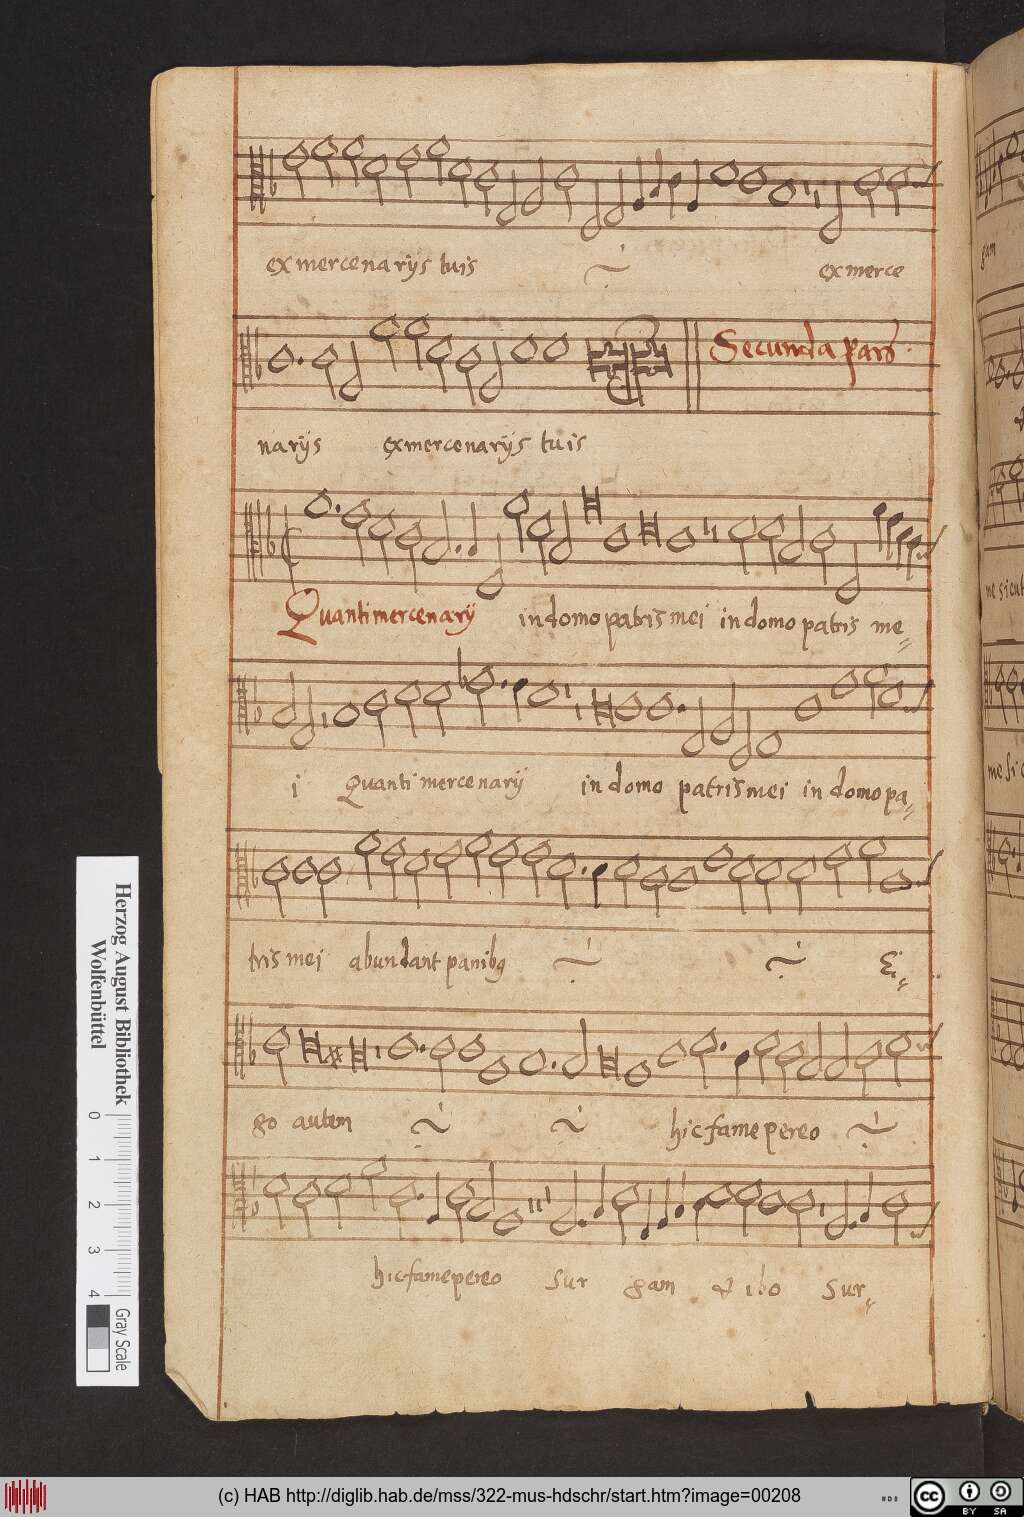 ex mercenarijs tuis ex merce
Secunda pars
narijs ex mercenarijs tuis
Quanti mercenarij in domo patris mei in domo patris me
i Quanti mercenarij in domo patris mei in domo pa
tris mei abundant panibq
go autem hic fame pereo
hic fame pereo Sur gam & ibo Sur
gam
me sicut
me sic
Herzog August Bibliothek
Wolfenbüttel
0 1 2 3 4
Gray Scale
(c) HAB http://diglib.hab.de/mss/322-mus-hdschr/start.htm?image=00208
cc BY SA